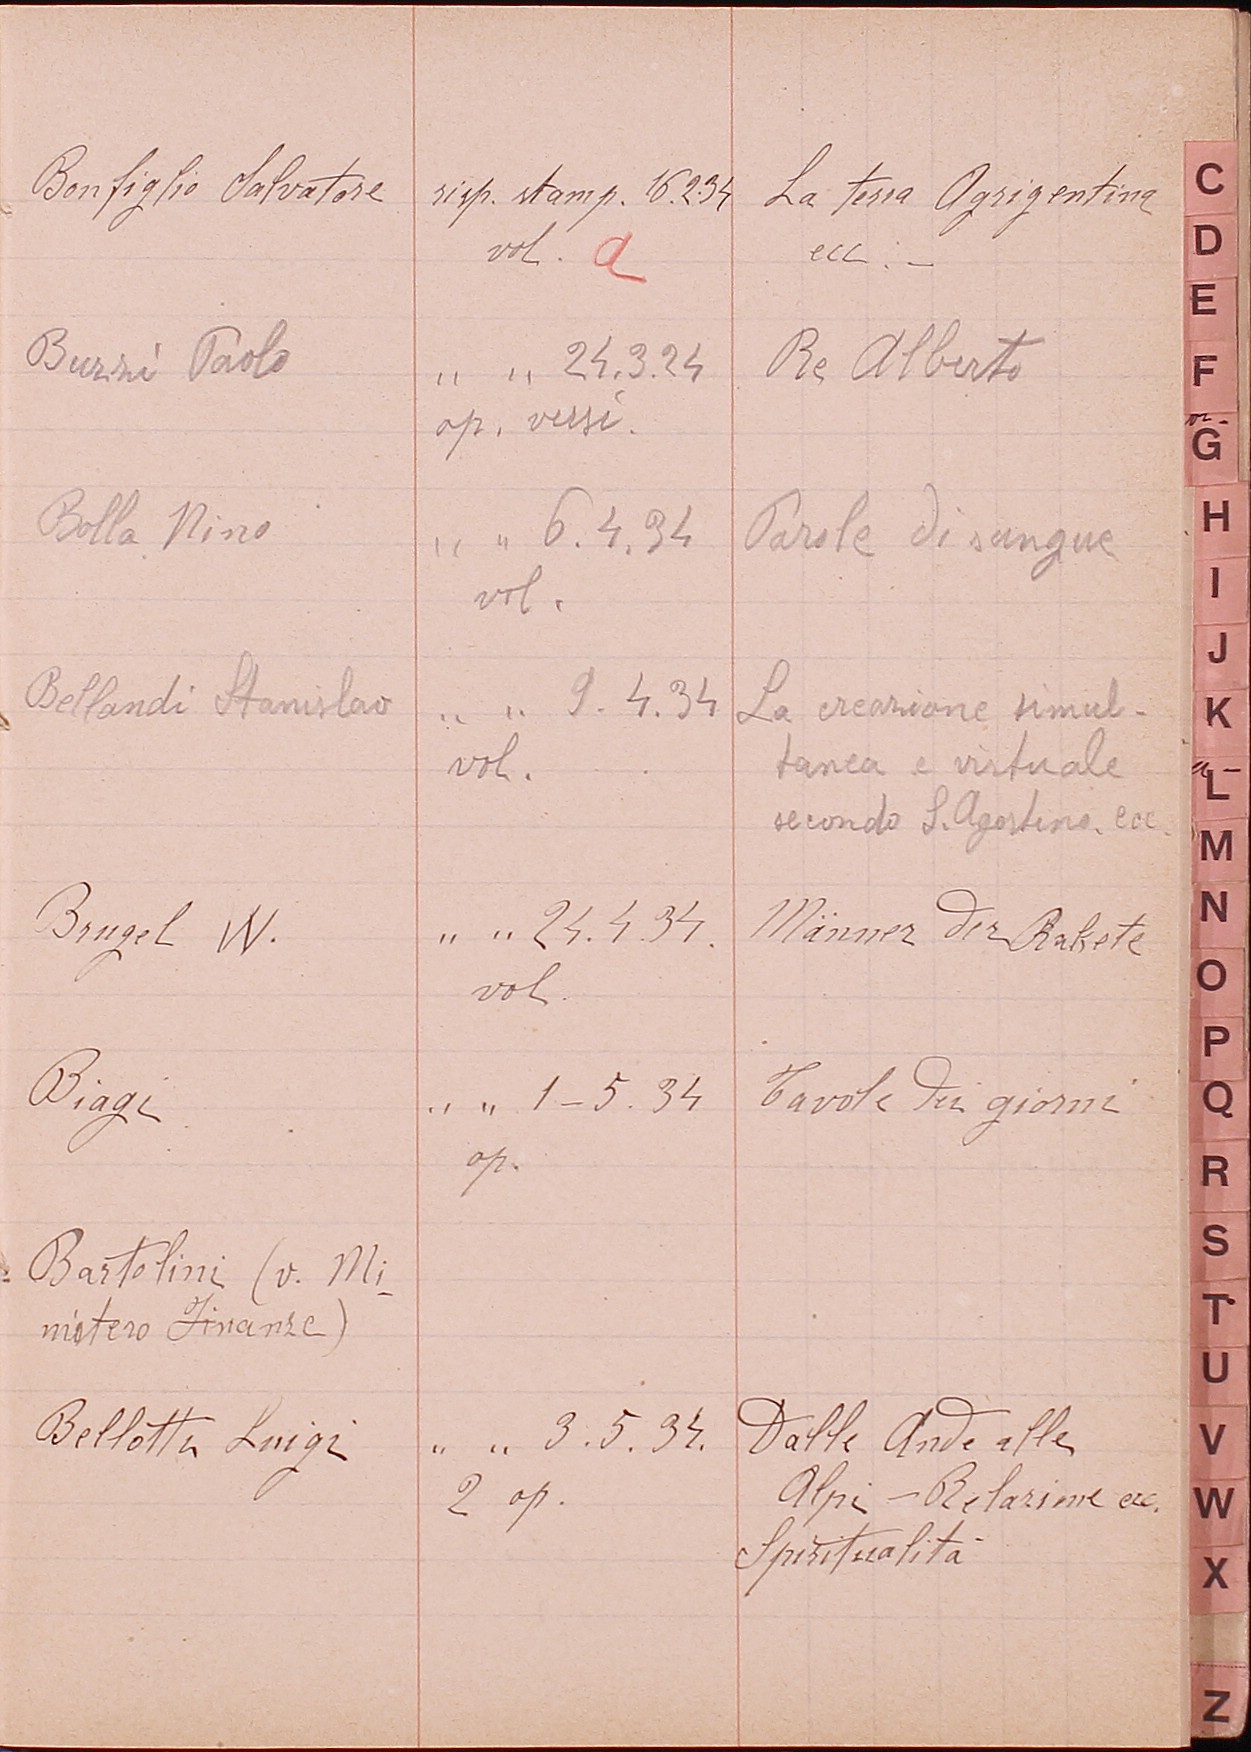 Bonfiglio Salvatore risp. stamp. 16.2.34 La terra Agrigentina
vol. a ecc. : –
Buzzi Paolo " " 24.3.24 Re Alberto
op. versi.
Bolla Nino " " 6.4.34 Parole di sangue
vol.
Bellandi Stanislao " " 9.4.34 La creazione simul-
vol. tanea e virtuale
secondo S. Agostino. ecc.
Brugel W. " " 24.4.34. Männer der Rakete
vol.
Biagi " " 1-5.34 Tavole dei giorni
op.
Bartolini (v. Mi-
nistero Finanze)
Bellotti Luigi " " 3.5.34. Dalle Ande alle
2 op. Alpi – Relazione ecc.
Spiritualità
C
D
E
F
G
H
I
J
K
L
M
N
O
P
Q
R
S
T
U
V
W
X
Z